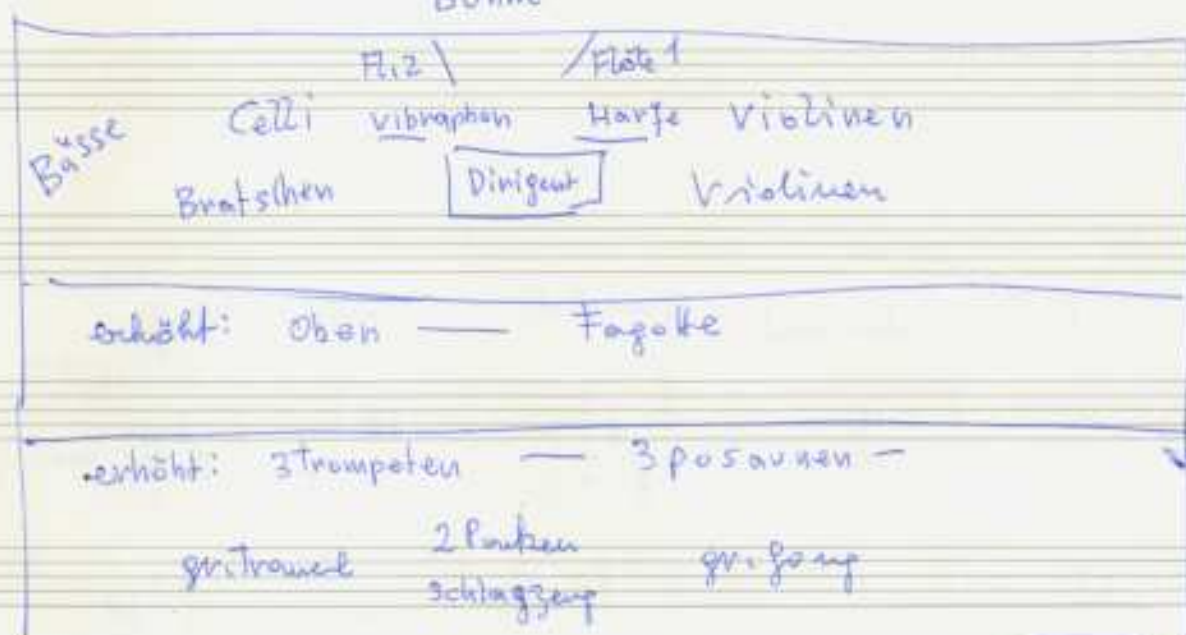 Bühne
Fl.2 \ / Flöte 1
Celli Vibraphon Harfe Violinen
Bässe
Bratschen Dirigent Violinen
erhöht: Oboen — Fagotte
erhöht: 3 Trompeten — 3 Posaunen —
gr. Trommel 2 Pauken gr. Gong
Schlagzeug